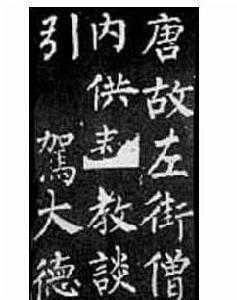 唐故左街僧
内供教談
引駕大德